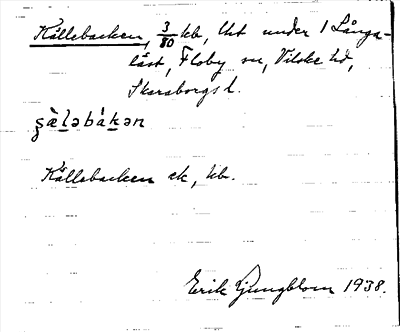 Källebacken, 3/80 kb, Uht under 1 Långa-
låst, Floby sn, Vilske hd,
Skaraborgs l.
Källebacken ek, kb.
Erik Ljungblom 1938.